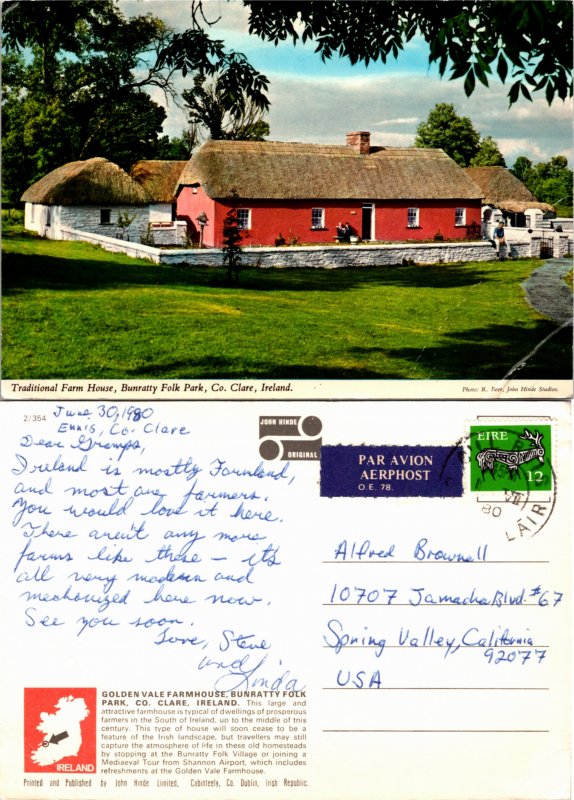 Traditional Farm House, Bunratty Folk Park, Co. Clare, Ireland.
Photo: R. Beer, John Hinde Studios.
2/354
June 30, 1980
Ennis, Co. Clare
Dear Gramps,
Ireland is mostly Farmland,
and most are farmers.
You would love it here.
There aren't any more
farms like these – its
all very modern and
mechanized here now.
See you soon.
Love, Steve
and Linda
JOHN HINDE
ORIGINAL
PAR AVION
AERPHOST
O.E. 78.
EIRE
12
VII
80
LÁIR
Alfred Brownell
10707 Jamacha Blvd. #67
Spring Valley, California
92077
USA
IRELAND
GOLDEN VALE FARMHOUSE, BUNRATTY FOLK
PARK, CO. CLARE, IRELAND. This large and
attractive farmhouse is typical of dwellings of prosperous
farmers in the South of Ireland, up to the middle of this
century. This type of house will soon cease to be a
feature of the Irish landscape, but travellers may still
capture the atmosphere of life in these old homesteads
by stopping at the Bunratty Folk Village or joining a
Mediaeval Tour from Shannon Airport, which includes
refreshments at the Golden Vale Farmhouse.
Printed and Published by John Hinde Limited, Cabinteely, Co. Dublin, Irish Republic.